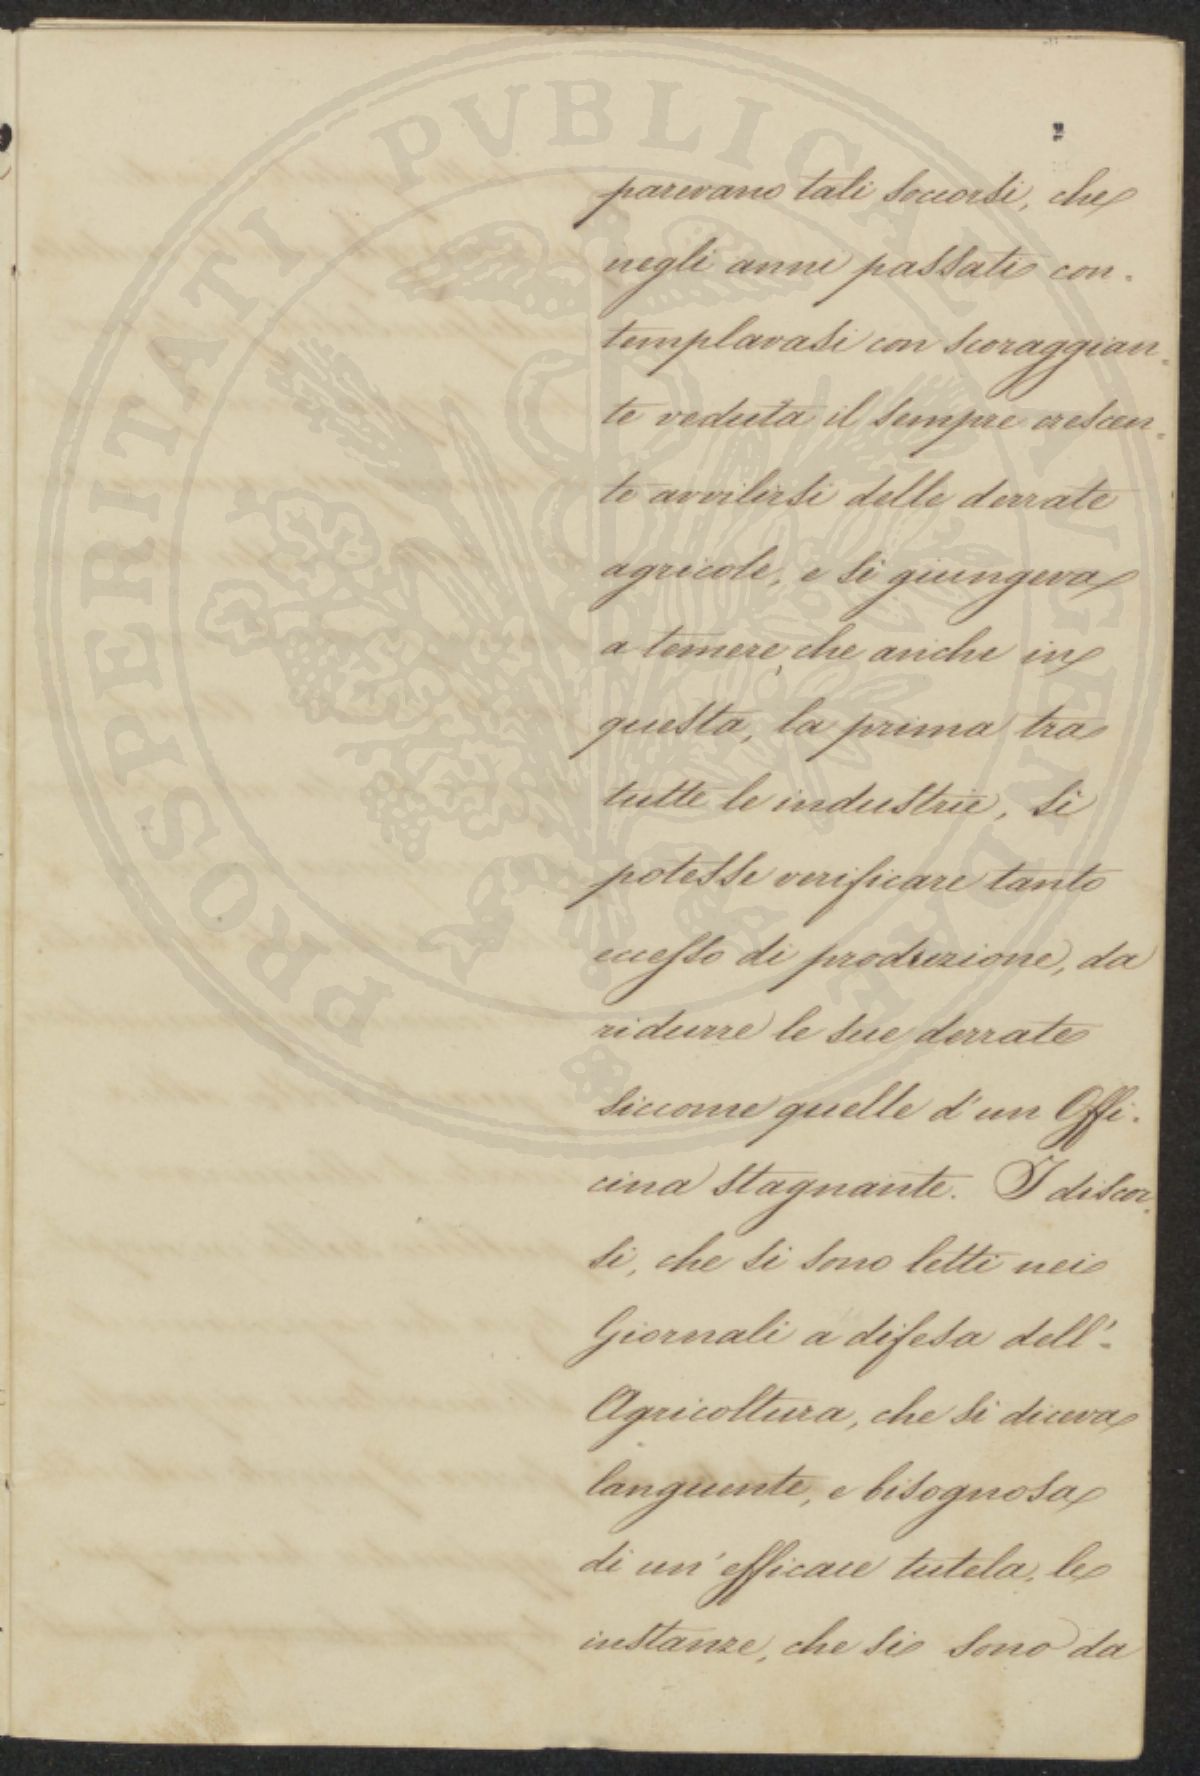 PROSPERITATI PVBLICAE AVGENDAE
parevano tali soccorsi, che
negli anni passati con-
templavasi con scoraggian-
te veduta il sempre crescen-
te avvilirsi delle derrate
agricole, e si giungeva
a temere, che anche in
questa, la prima tra
tutte le industrie, si
potesse verificare tanto
eccesso di produzione, da
ridurre le sue derrate
siccome quelle d'un Offi-
cina stagnante. I discor-
si, che si sono letti nei
Giornali a difesa dell'-
Agricoltura, che si diceva
languente, e bisognosa
di un' efficace tutela, le
instanze, che si sono da